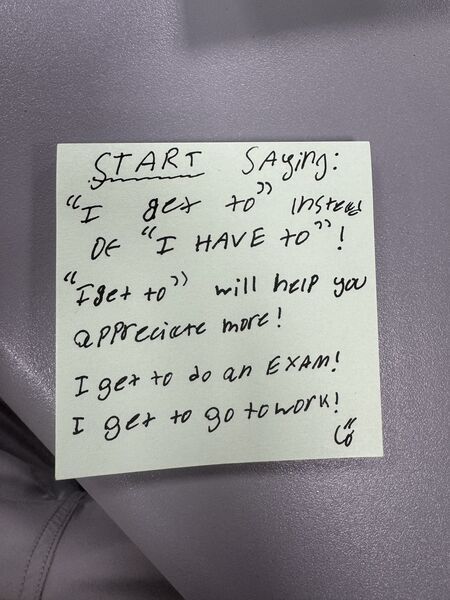 START SAying:
"I get to" instead
OF "I HAVE to"!
"I get to" will help you
appreciate more!
I get to do an EXAM!
I get to go to work!